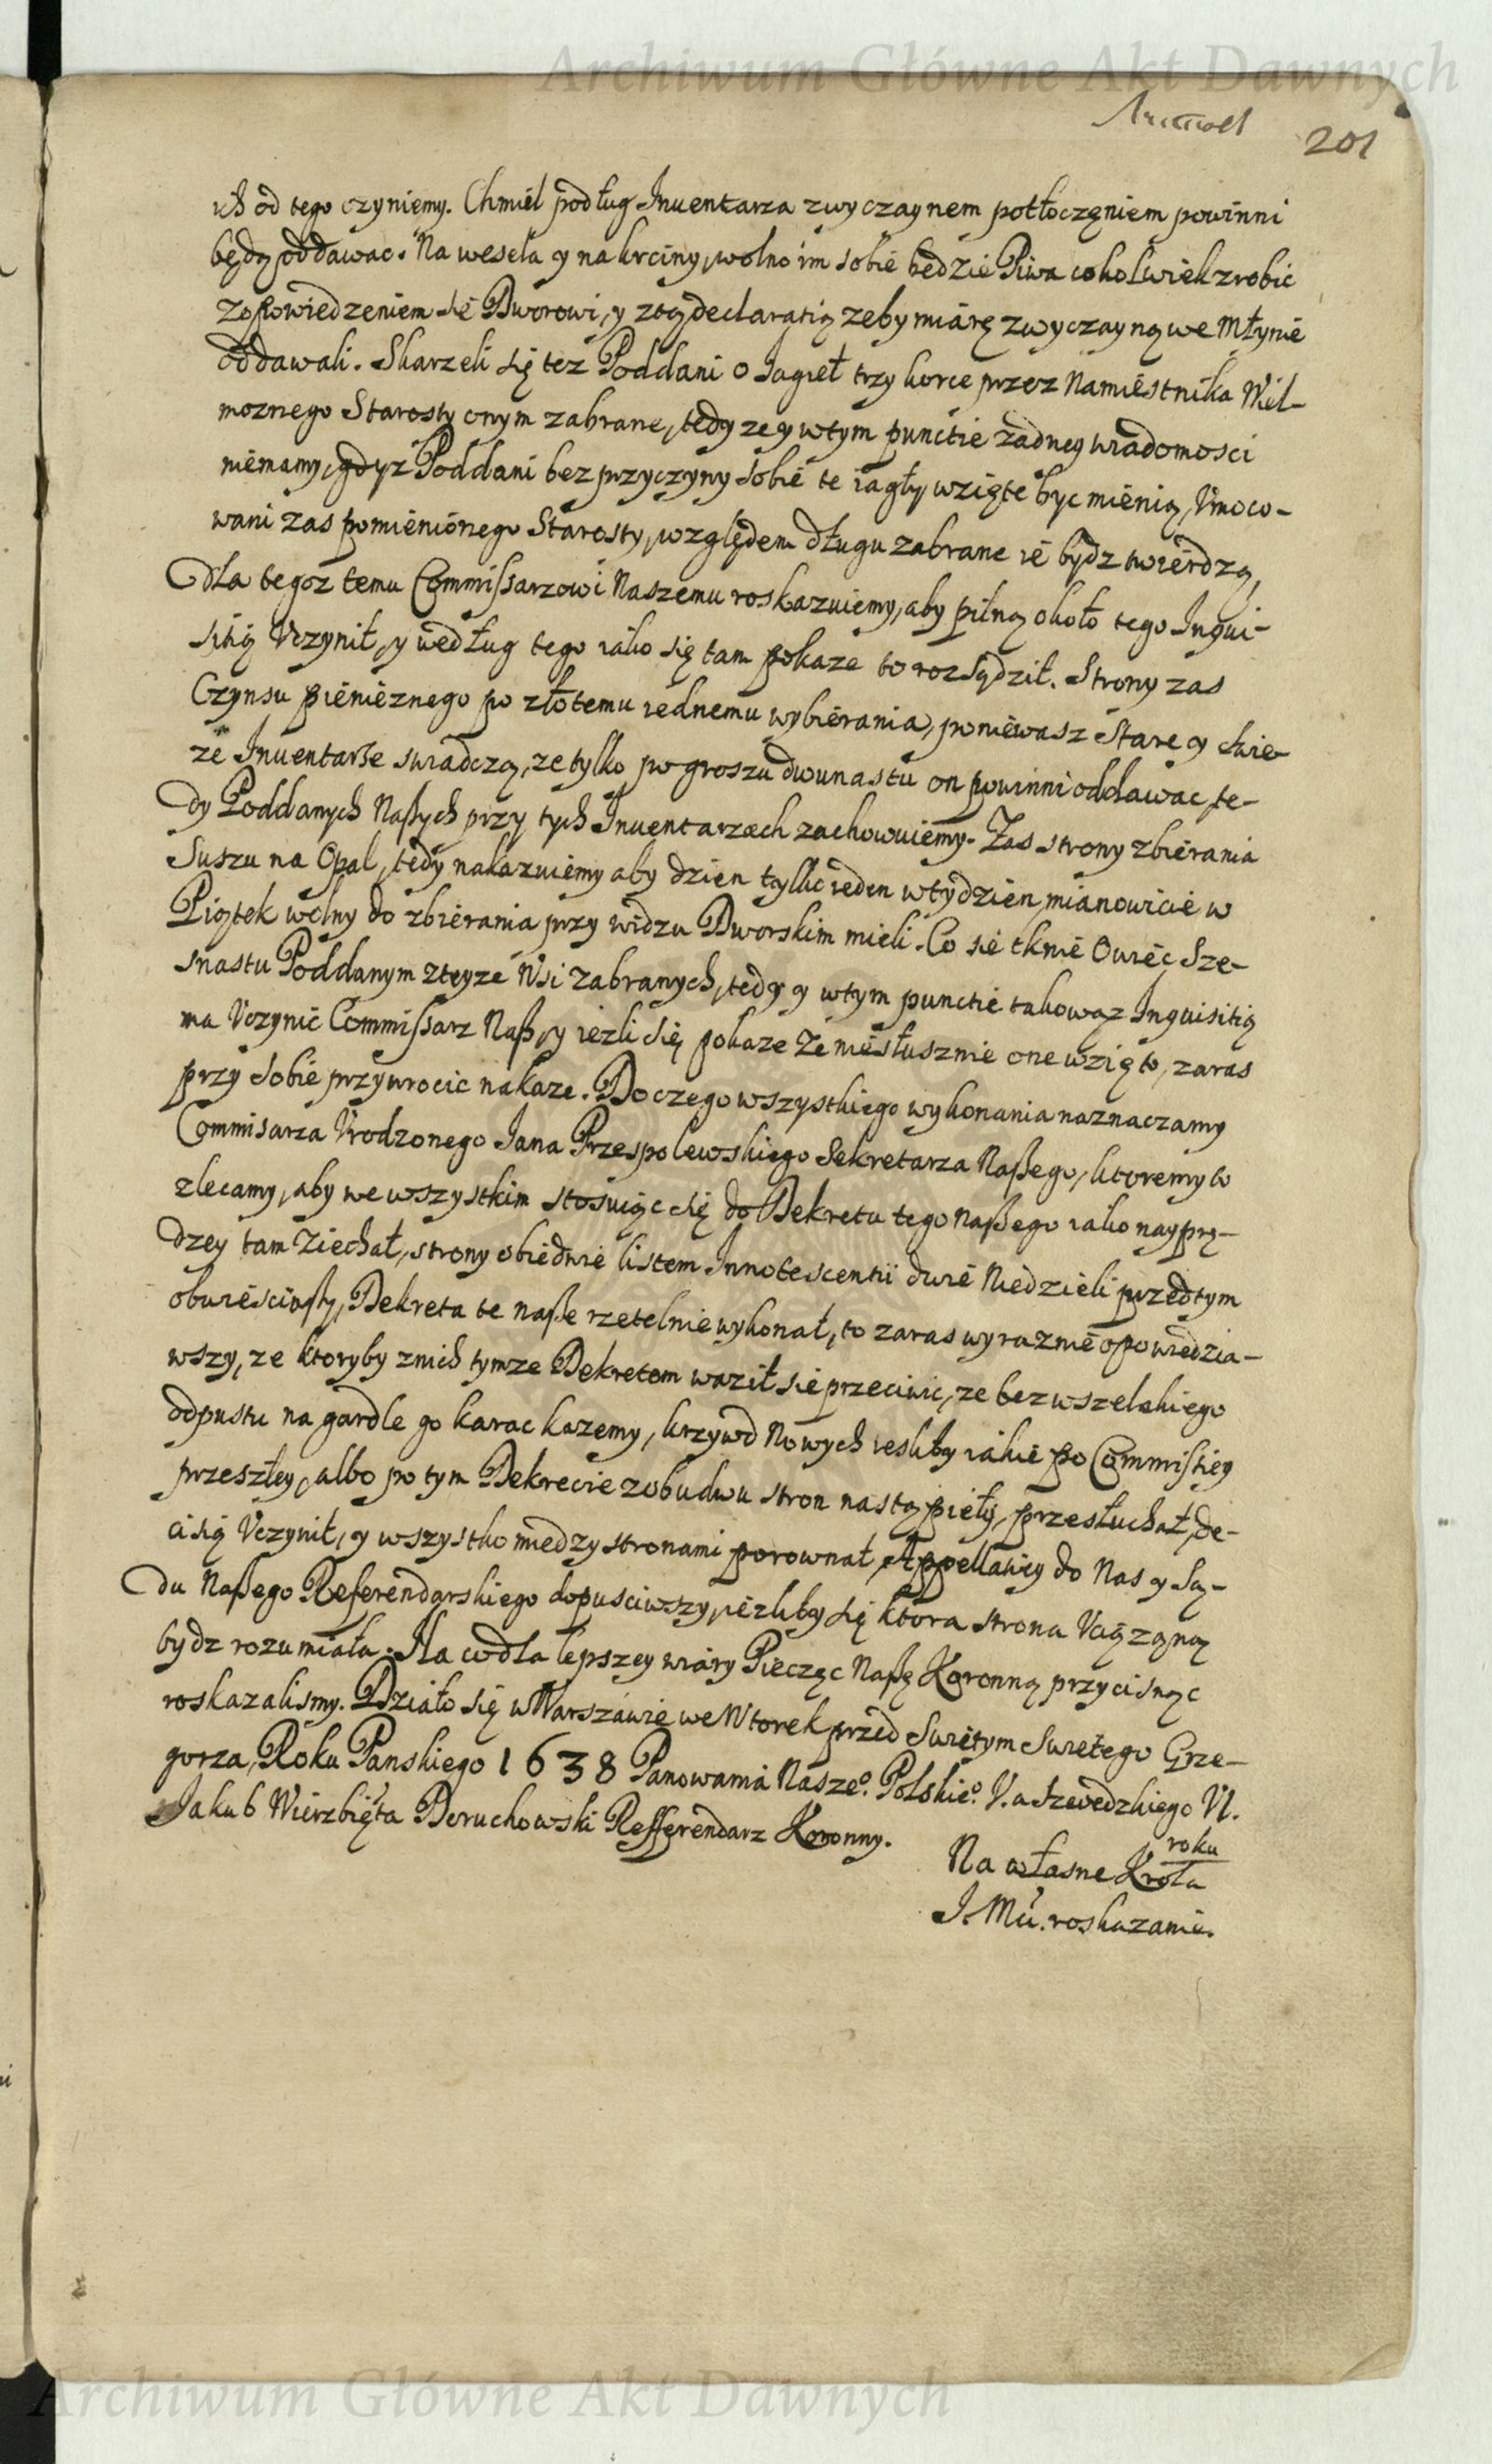 Archiwum Główne Akt Dawnych
201
ich od tego czyniemy. Chmiel podług Inuentarza zwyczaynem potłoczęniem powinni
będą oddawac. Na wesela y na krciny, wolno im sobie będzie Piwa cokolwiek zrobic
zopowiedzeniem sie Dworowi, y zoą declaratią zeby miarę zwyczayną we Młynie
oddawali. Skarzeli się tez Poddani o Jagieł trzy korce przez Namiestnika Wiel-
moznego Starosty onym zabrane, tedy ze y wtym punctie żadney wiadomosci
niemamy, gdyz Poddani bez przyczyny sobie te iagły wzięte byc mienią, Vmoco-
wani zas pomienionego Starosty, względem długu zabrane ie bydz twierdzą,
dla tegoz temu Commissarzowi Naszemu roskazuiemy, aby pilną około tego Inqui-
sitią Vczynił, y według tego iako się tam pokaze to rozsądził. Strony zas
Czynsu pienięznego po złotemu iednemu wybierania, poniewasz Stare y swie-
ze Inuentarße swiadczą, ze tylko po groszu dwunastu on powinni oddawac, te-
dy Poddanych Naßych przy tych Inuentarzach zachowuiemy. Zas strony zbierania
Suszu na Opal, tedy nakazuiemy aby dzien tylko ieden wtydzien, mianowicie w
Piątek wolny do zbierania przy widzu Dworskim mieli. Co sie tknie Owiec Sze-
snastu Poddanym zteyze Wsi zabranych, tedy y wtym punctie takowąz Inquisitią
ma Vczynic Commissarz Naß, y iezli się pokaze ze niesłusznie one wzięto, zaras
przy sobie przywrocic nakaze. Do czego wszystkiego wykonania naznaczamy
Commisarza Vrodzonego Jana Przespolewskiego Sekretarza Naßego, ktoremy to
zlecamy, aby we wszystkim stosuiąc się do Dekretu tego Naßego iako nayprę-
dzey tam ziechał, strony obiedwie listem Innotescentii dwie Niedzieli przedtym
obwiesciwßy, Dekreta te naße rzetelnie wykonał, to zaras wyraznie opowiedzia-
wszy, ze ktoryby znich tymze Dekretom waził sie przeciwic, ze bez wszelakiego
odpustu na gardle go karac kazemy, krzywd Nowych iesliby iakie po Commissiey
przeszłey, albo po tym Dekrecie zobudwu stron nastąpieły, przesłuchał, de-
cisią Vczynił, y wszystko miedzy stronami porownał, Appellatiey do Nas y Są-
du Naßego Referendarskiego dopusciwszy, iezliby się ktora strona Vciązoną
bydz rozumiała. Na co dla lepszey wiary Pieczęc Naßę Koronną przycisnąc
roskazalismy. Działo się w Warszawie we Wtorek przed Swiętym Swietego Grze-
gorza, Roku Panskiego 1638 Panowania Nasze⁰. Polskie⁰. V. a Szwedzkiego VI.
roku
Jakub Wierzbięta Doruchowski Refferendarz Koronny.
Na własne Krola
J. Mći. roskazanie.
Archiwum Główne Akt Dawnych